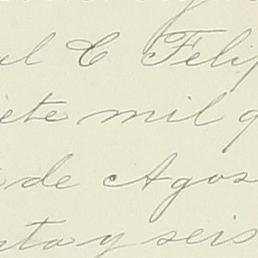 al C Felip
iete mil q
de Agos
nta y seis